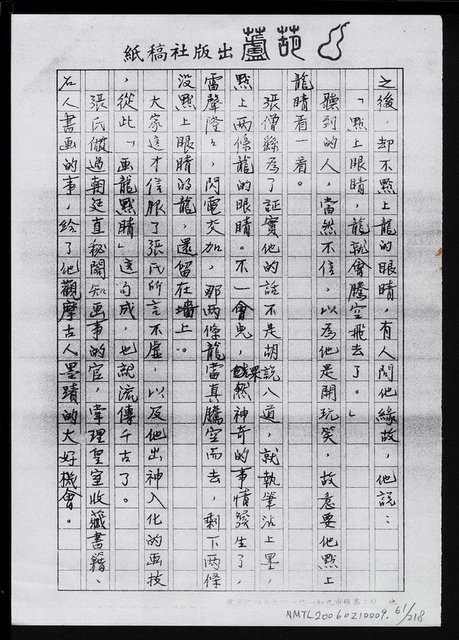 葫蘆出版社稿紙
之後，却不點上龍的眼睛，有人問他緣故，他說：
「點上眼睛，龍就會騰空飛去了。」
聽到的人，當然不信，以為他是開玩笑，故意要他點上
龍睛看一看。
張僧繇為了証實他的話不是胡說八道，就執筆沾上墨，
點上两條龍的眼睛。不一會兒，果然神奇的事情發生了，
雷聲隆隆，閃電交加，那两條龍當真騰空而去，剩下两條
沒點上眼睛的龍，還留在墻上。
大家這才信服了張氏所言不虛，以及他出神入化的画技
，從此「画龍點睛」這句成，也就流傳千古了。
張氏做過朝廷直秘閣知画事的官，掌理皇室收藏書籍、
石人書画的事，給了他觀摩古人墨蹟的大好機會。
NMTL20060210009. 61/218